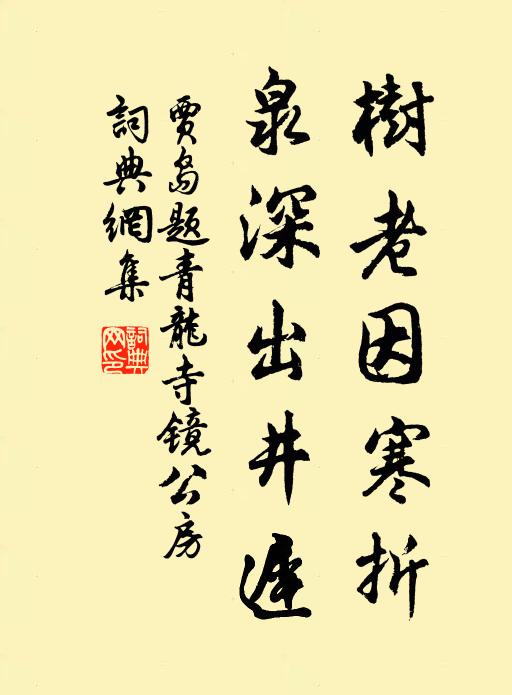 樹老因寒折
泉深出井遲
賈島题青龍寺镜公房
詞典網集
詞典網印